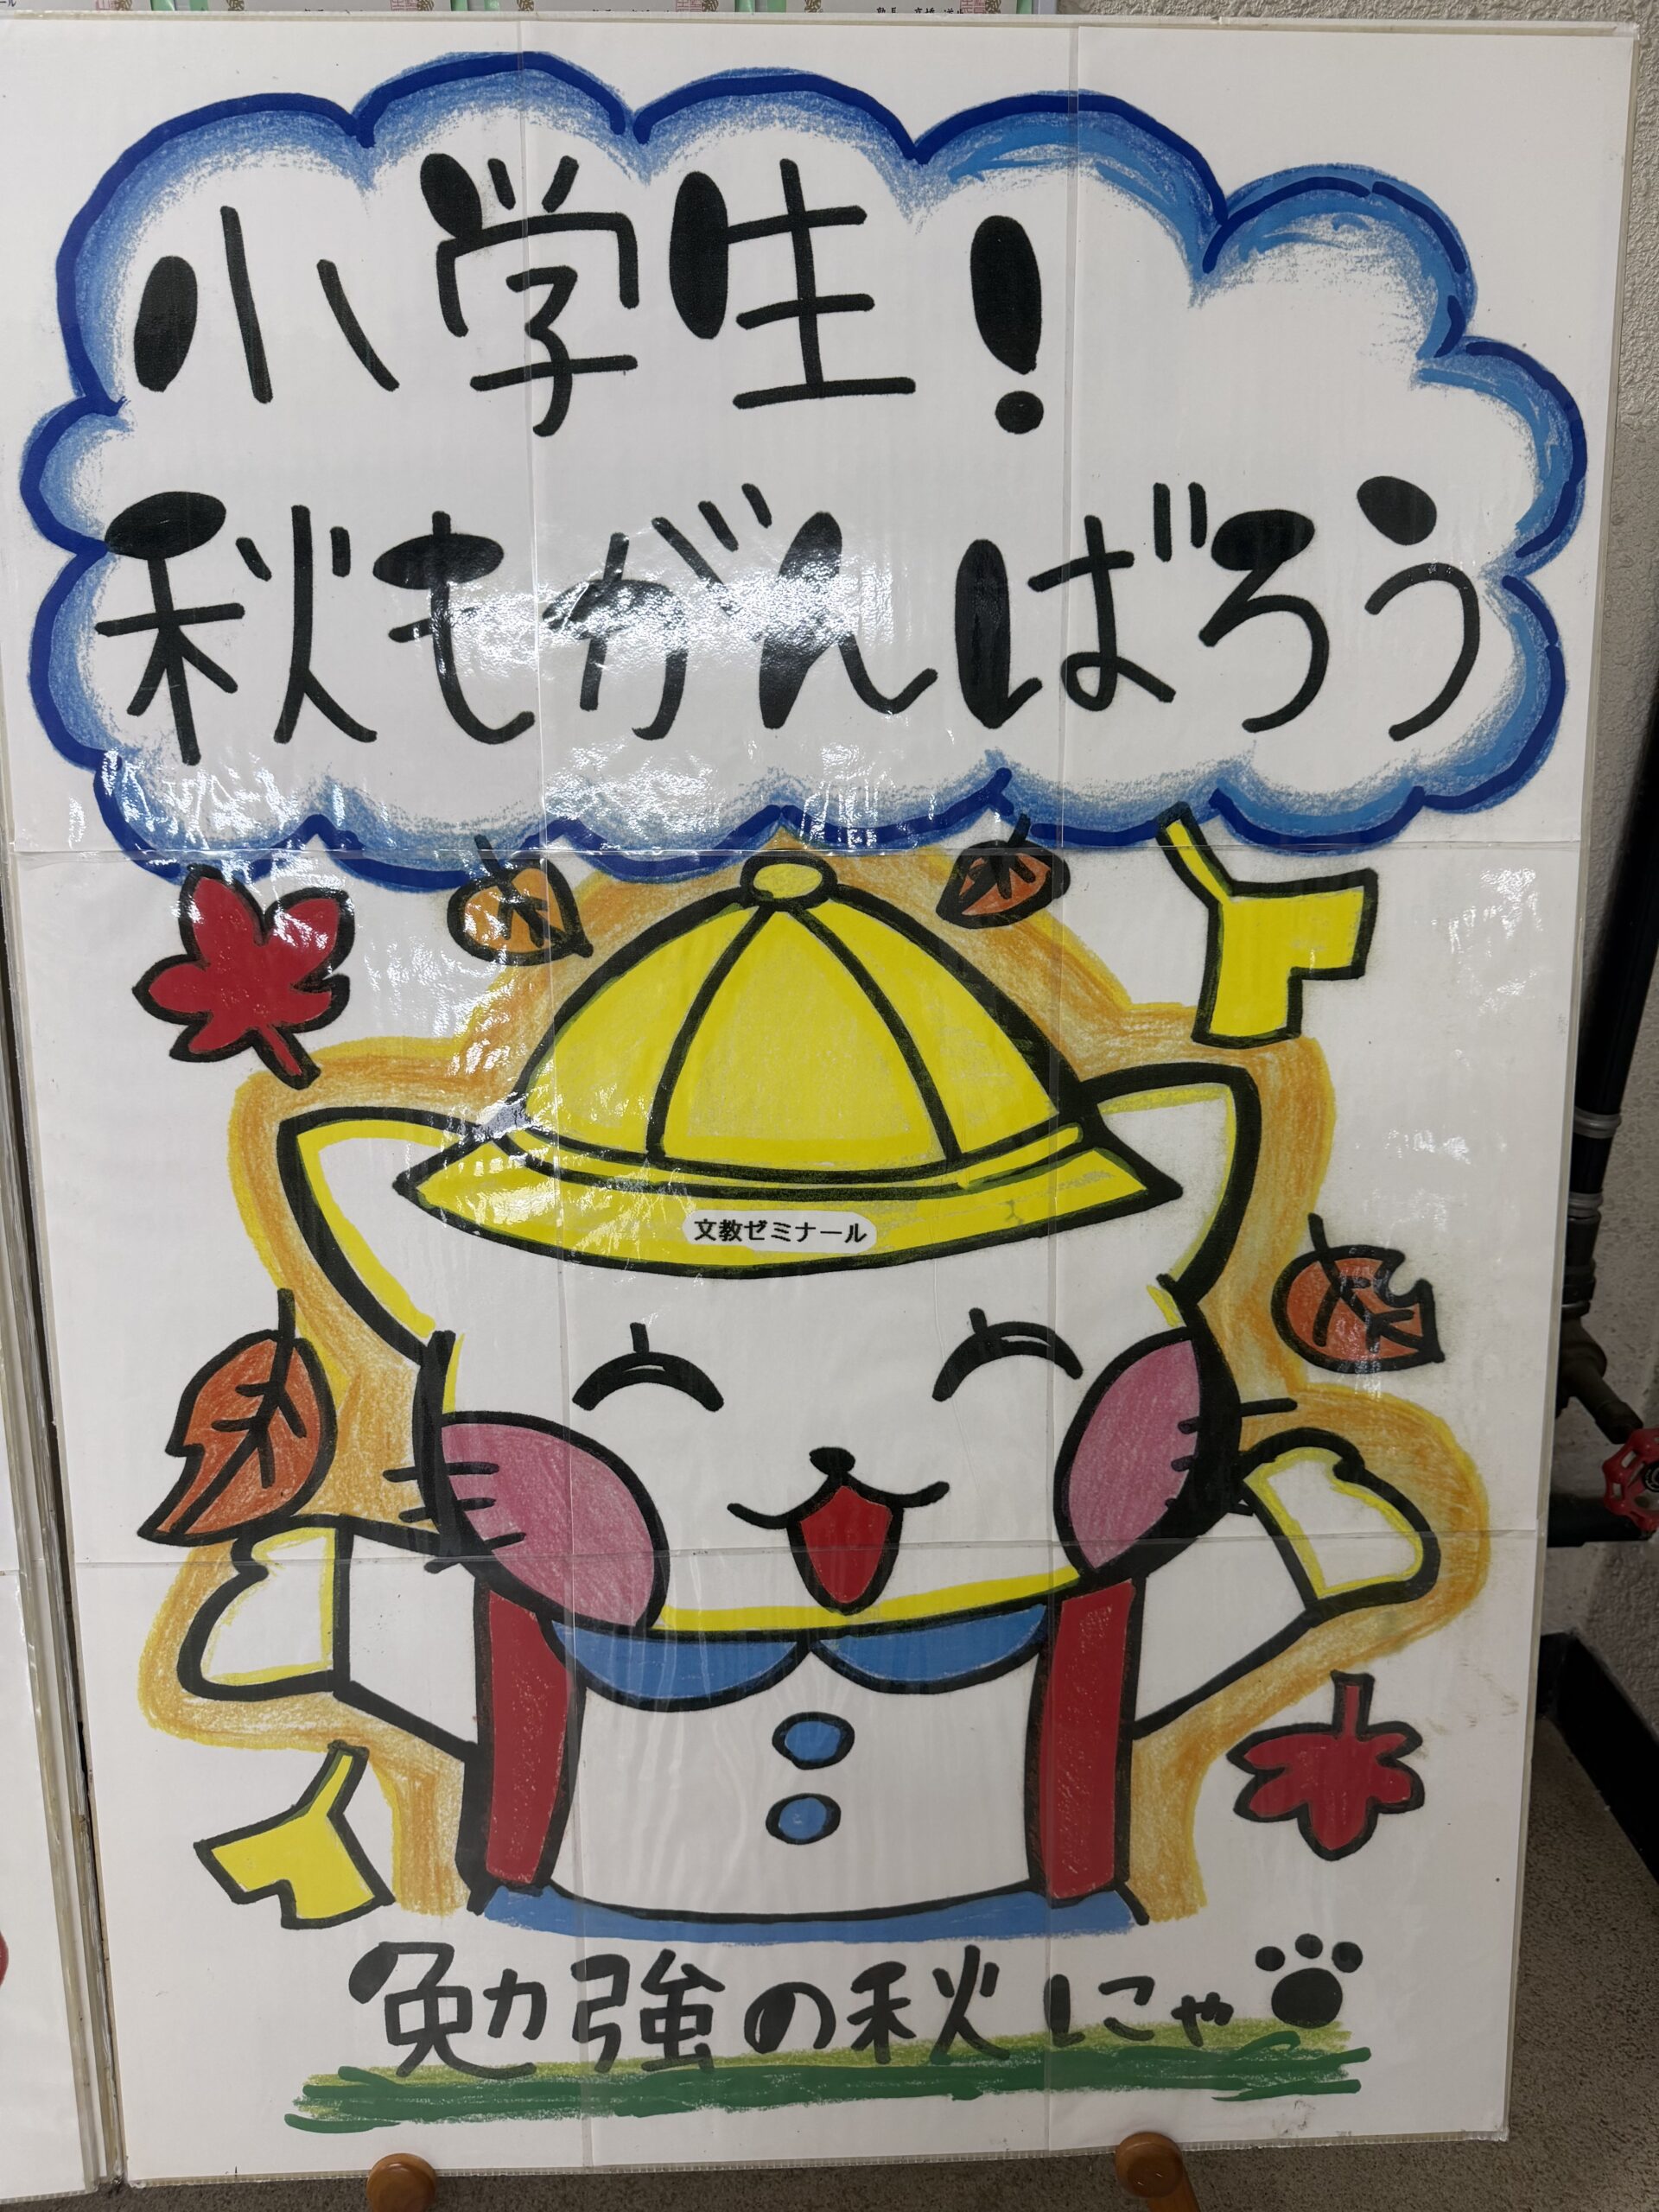 小学生!
秋もがんばろう
文教ゼミナール
勉強の秋にゃ